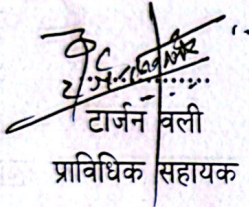 टार्जन वली
प्राविधिक सहायक